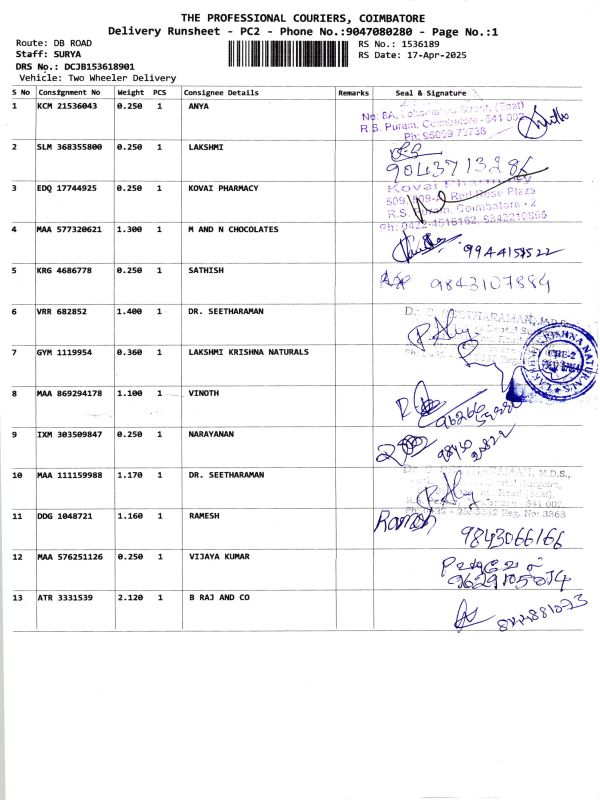 THE PROFESSIONAL COURIERS, COIMBATORE
Delivery Runsheet - PC2 - Phone No.:9047080280 - Page No.:1
Route: DB ROAD
RS No.: 1536189
Staff: SURYA
RS Date: 17-Apr-2025
DRS No.: DCJB153618901
Vehicle: Two Wheeler Delivery
S No Consignment No Weight PCS Consignee Details Remarks Seal & Signature
1 KCM 21536043 0.250 1 ANYA
R.S. Puram, Coimbatore - 641 002
Ph: 95059 75738
2 SLM 368355800 0.250 1 LAKSHMI
9043713286
3 EDQ 17744925 0.250 1 KOVAI PHARMACY
Kovai Pharmacy
Red Rose Plaza
R.S. Puram, Coimbatore - 2
4 MAA 577320621 1.300 1 M AND N CHOCOLATES
5 KRG 4686778 0.250 1 SATHISH
9843107884
6 VRR 682852 1.400 1 DR. SEETHARAMAN
7 GYM 1119954 0.360 1 LAKSHMI KRISHNA NATURALS
LAKSHMI KRISHNA NATURALS
CBE-2
8 MAA 869294178 1.100 1 VINOTH
9 IXM 303509847 0.250 1 NARAYANAN
10 MAA 111159988 1.170 1 DR. SEETHARAMAN
M.D.S.,
Reg. No: 3363
11 DDG 1048721 1.160 1 RAMESH
Ramesh
9843066166
12 MAA 576251126 0.250 1 VIJAYA KUMAR
13 ATR 3331539 2.120 1 B RAJ AND CO